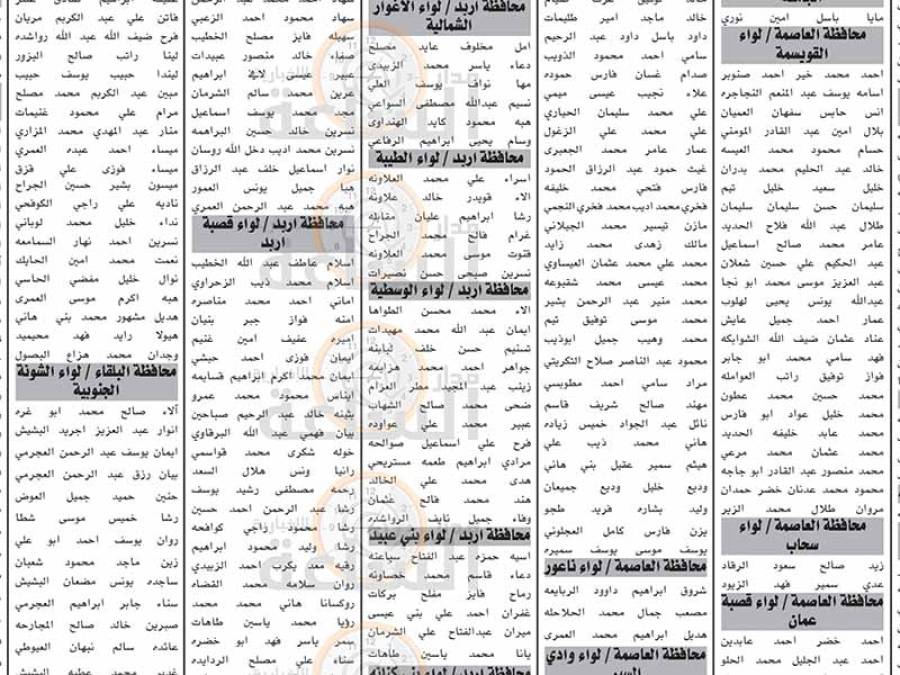 مايا باسل امين نوري
محافظة العاصمة / لواء
القويسمة
احمد محمد خير احمد صنوبر
اسامه يوسف عبد المنعم النجاجره
انس حابس سفهان العميان
بلال امين عبد القادر المومني
حسام محمود محمد العيسه
خالد عبد الحليم محمد بدران
خليل سعيد خليل تيم
سليمان حسن سليمان سليمان
طلال عبد الله فلاح الحديد
عامر محمد صالح اسماعيل
عبد الحكيم علي حسين شعلان
عبد العزيز موسى محمد ابو نجا
عبدالله يونس يحيى لهلوب
عمار احمد جميل عايش
عناد عثمان ضيف الله الشوابكه
فهد سامي محمد ابو جابر
فواز توفيق راتب العوامله
محمد حسين محمد عطون
محمد خليل عواد ابو فارس
محمد عابد خليفه الحديد
محمد عثمان محمد مرعي
محمد منصور عبد القادر ابو جاجه
محمود محمد عدنان خضر حمدان
مروان طلال محمد الزير
محافظة العاصمة / لواء
سحاب
زيد صالح سعود الرقاد
عدي سمير فهد الزيود
محافظة العاصمة / لواء قصبة
عمان
احمد خضر احمد عابدين
احمد عبد الجليل محمد الحلو
خالد ماجد امير طليمات
داود باسل داود عبد الرحيم
سامي احمد محمود الذويب
صدام غسان فارس حموده
علاء نجيب عيسى ميمي
علي محمد سليمان الحياري
علي محمد علي الزغول
عمار عامر محمد الجعبري
غيث حمود عبد الرزاق الحمود
فارس فتحي محمد خليفه
فخري محمد اديب محمد فخري النجمي
مازن تيسير محمد الجيلاني
مالك زهدي محمد زايد
محمد علي محمد عثمان العيساوي
محمد عيسى محمد شقبوعه
محمد منير عبد الرحمن بشير
محمد موسى توفيق تيم
محمد وهيب جميل ابوذيب
محمود عبد الناصر صلاح التكريتي
مراد سامي احمد مطوبيسي
مهند صالح شريف قاسم
نائل عبد الجواد خميس زياده
هاني محمد ذيب علي
هيثم سمير عقيل بني هاني
وديع خليل وديع جميعان
وليد بشاره فريد طجو
يزن فارس كامل العجلوني
يوسف موسى يوسف سميره
محافظة العاصمة / لواء ناعور
شروق ابراهيم داوود الربايعه
مصعب جمال محمد الحلاحله
هديل ابراهيم محمد العمرى
محافظة العاصمة / لواء وادي
السير
محافظة اربد / لواء الاغوار
الشمالية
امل مخلوف عايد مصلح
دعاء ياسر محمد الزبيدي
مها نواف يوسف العلي
نسيم عبدالله مصطفى السواعي
هبه محمود كايد الهنداوي
وسام يحيى ابراهيم الرفاعي
محافظة اربد / لواء الطيبة
اسراء علي محمد العلاونه
الاء قويدر خالد علاونه
رشا ابراهيم عليان مقابله
غرام فالح محمد الجراح
فتوت موسى محمد العلاونه
نسرين صبحي حسن نصيرات
محافظة اربد / لواء الوسطية
الاء محمد محسن الطواها
ايمان عبد الله محمد مهيدات
تسنيم حسن خلف ثبابنه
جواهر احمد محمد هزايمه
زينب عبد المجيد مطر العزام
ضحى محمد صالح الشهاب
عبير محمد علي عواوده
فرح علي اسماعيل صوالحه
مرادي ابراهيم طعمه مستريحي
هدى محمد علي الخالد
هند محمد فالح عثمان
وفاء جميل نايف الرواشده
محافظة اربد / لواء بني عبيد
اسيه حمزه عبد الفتاح سباعنه
دعاء قاسم محمد خصاونه
رماح فايز مفلح بركات
غفران احمد علي بني عيسى
ميران عبدالفتاح علي الشرمان
يانا محمد ياسين طاهات
محافظة اربد / لواء بني كنانة
سهاد محمود احمد الزعبي
سهيله فايز مصلح الخطيب
خالد منصور عبيدات
عبير عيسى لافي ابراهيم
عرين محمد سالم الشرمان
مجد محمد يوسف اسماعيل
نسرين خالد حسين البراهمه
نسرين محمد اديب دخل الله روسان
نوار اسماعيل خلف عبد الرزاق
هبا جميل يونس العمور
هبه محمد عبد الرحمن العمري
محافظة اربد / لواء قصبة
اربد
اسلام عاطف عبد الله الخطيب
اسلام محمد ذيب الزحراوي
اماني احمد محمد مناصره
امنه فواز جبر بنيان
اميره عفيف امين غنيم
ايمان فوزي احمد حبشي
ايمان محمد اكرم ابراهيم قسايمه
ايناس محمود محمد عمرو
بثينه خالد عبد الرحيم صباحين
بيان فهمي عبد الله البرقاوي
خوله شكري محمد قواسمي
رانيا ونس هلال السعد
رحمه مصطفى رشيد يوسف
رشا عبد الرحمن احمد حسين
رشا محمود راجي كوافحه
رشا وليد محمود ابراهيم
رقيه معد يكرب احمد الزبيدي
روان سلامه محمد القضاه
روكسانا هاني محمد محمد
رؤيا محمد ياسين طاهات
سمر ياسر فهد ابو خضره
سناء علي مصلح الردايده
فاتن علي عبد الكريم مريان
فرح ضيف الله عبد الله رواشده
لينا راتب صالح البزور
ليندا حبيب يوسف حبيب
مبين عبد الكريم محمد مصلح
مرام علي محمود غنيمات
منار عبد المهدي محمد المزاري
ميساء احمد عبده العمري
ميساء فوزي علي قزق
ميسون بشير حسين الجراح
ناديه علي راجي الكوفحي
نداء خليل محمد لوباني
نسرين احمد نهار السمامعه
نعمت محمد امين الحايك
نوال خليل مفضي الحاسي
هبه اكرم موسى العمري
هديل مشهور محمد بني هاني
هيولا رايد فهد محيميد
وجدان محمد هزاع البصول
محافظة البلقاء / لواء الشونة
الجنوبية
آلاء صالح محمد ابو غره
انوار عبد العزيز اجريد البشيش
ايمان يوسف عبد الرحمن العجرمي
بيان رزق عبد الرحمن العجرمي
حنين حميد جميل العوض
رشا خميس موسى شطا
روان يوسف احمد ابو علي
زين ماجد محمود شعبان
ساجده يونس مضعان البشيش
سناء جابر ابراهيم العجرمي
صبرين خالد صالح المجارحه
عائده سالم نبهان العيوطي
غدير محمد عطيه البشيش